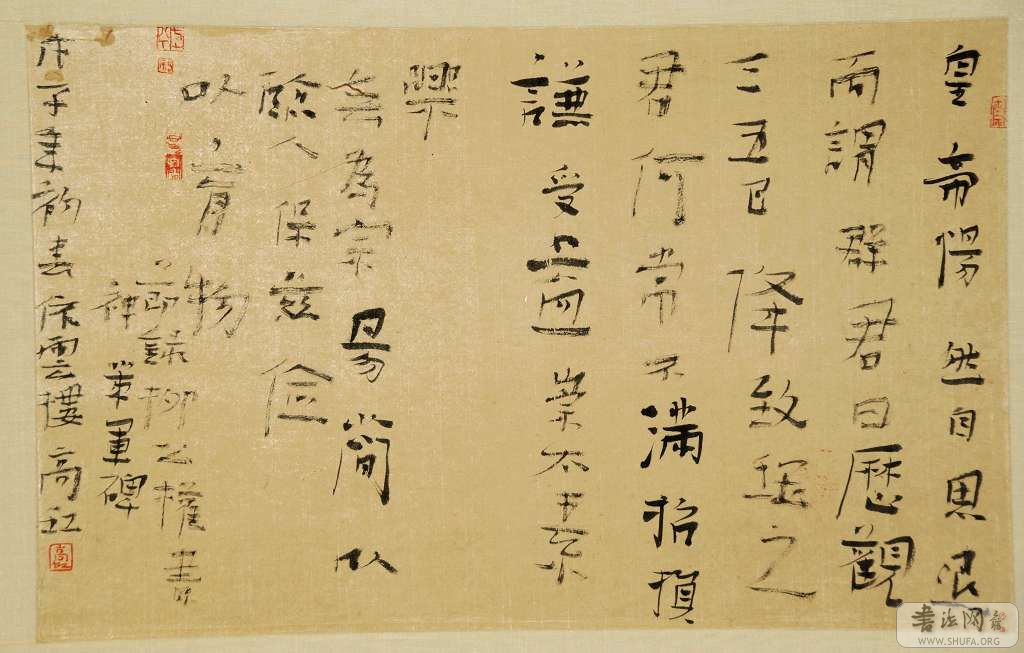 皇帝惕然自思退
而謂群君曰歷觀
三五已降致理之
君何常不滿招損
謙受益崇太素
樂
無為宗易簡以
臨人保慈儉
以育物
節錄柳公權書
神策軍碑
戊子年韵春依雲樓高紅
書法网
WWW.SHUFA.ORG